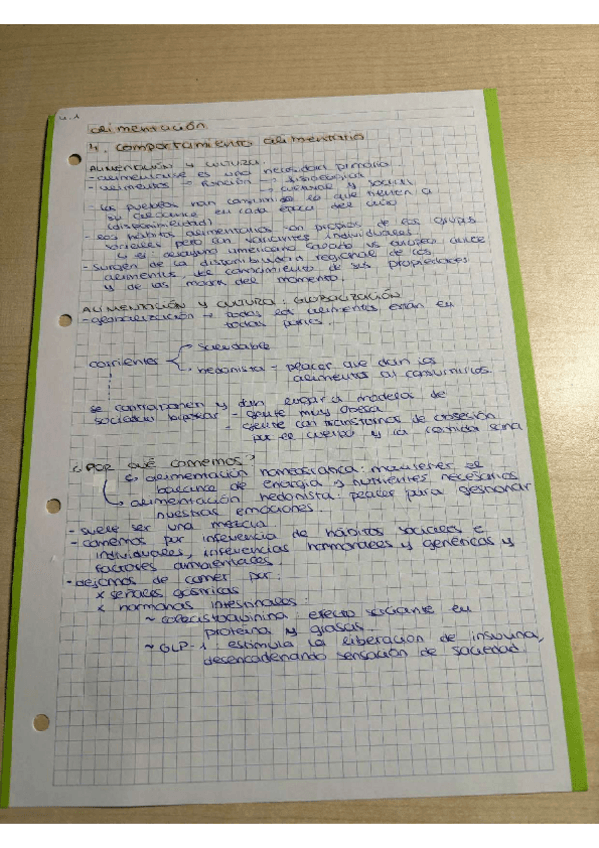 4.1
alimentación
4. comportamiento alimentario
ALIMENTACIÓN Y CULTURA:
- alimentarse es una necesidad primaria
- alimentos → función → fisiológica
→ cultural y social
- los pueblos han consumido lo que tienen a
su alcance en cada época del año
(disponibilidad)
- los hábitos alimentarios son propios de los grupos
sociales pero con variantes individuales
↳ ej desayuno americano salado vs europeo dulce
- surgen de la disponibilidad regional de los
alimentos, del conocimiento de sus propiedades
y de las modas del momento.
ALIMENTACIÓN Y CULTURA: GLOBALIZACIÓN
- globalización → todos los alimentos están en
todas partes.
corrientes
saludable
hedonista - placer que dan los
alimentos al consumirlos.
se contraponen y dan lugar a modelos de
sociedad bipolar - gente muy obesa
- gente con trastornos de obsesión
por el cuerpo y la comida sana
¿POR qué comemos?
↳ alimentación homeostática: mantener el
balance de energía y nutrientes necesarios
alimentación hedonista: placer para gestionar
nuestras emociones.
- suele ser una mezcla
- comemos por influencia de hábitos sociales e
individuales, influencias hormonales y genéticas y
factores ambientales.
- dejamos de comer por:
x señales gástricas
x hormonas intestinales:
~ colecistoquinina: efecto saciante en
proteína y grasas.
~ GLP-1 estimula la liberación de insulina,
desencadenando sensación de saciedad.